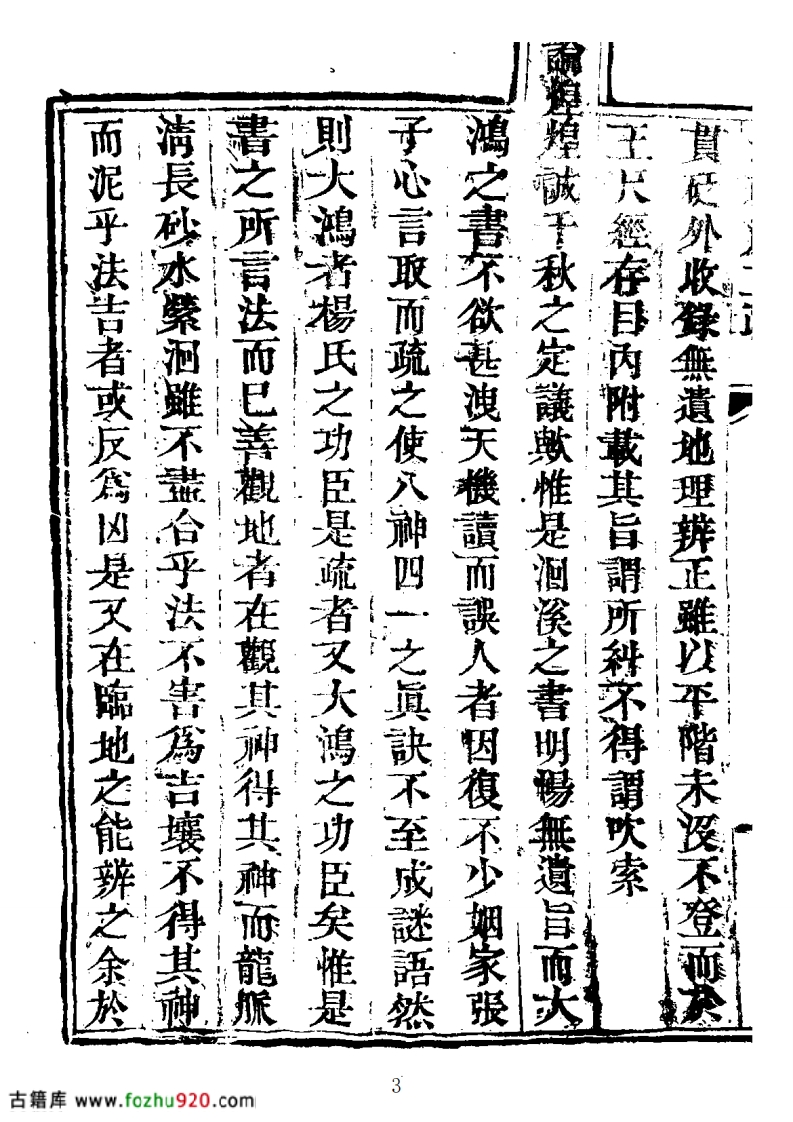 貫砭外收錄無遺地理辨正雖以平階未沒不登而於
玉尺經存目內附載其旨謂所糾不得謂吹索
論煌煌誠千秋之定議歟惟是洄溪之書明暢無遺旨而大
鴻之書不欲甚洩天機讀而誤人者因復不少姻家張
子心言取而疏之使八神四一之眞訣不至成謎語然
則大鴻者楊氏之功臣是疏者又大鴻之功臣矣惟是
書之所言法而已善觀地者在觀其神得其神而龍脈
淸長砂水縈洄雖不盡合乎法不害爲吉壤不得其神
而泥乎法吉者或反爲凶是又在臨地之能辨之余於
3
古籍库 www.fozhu920.com